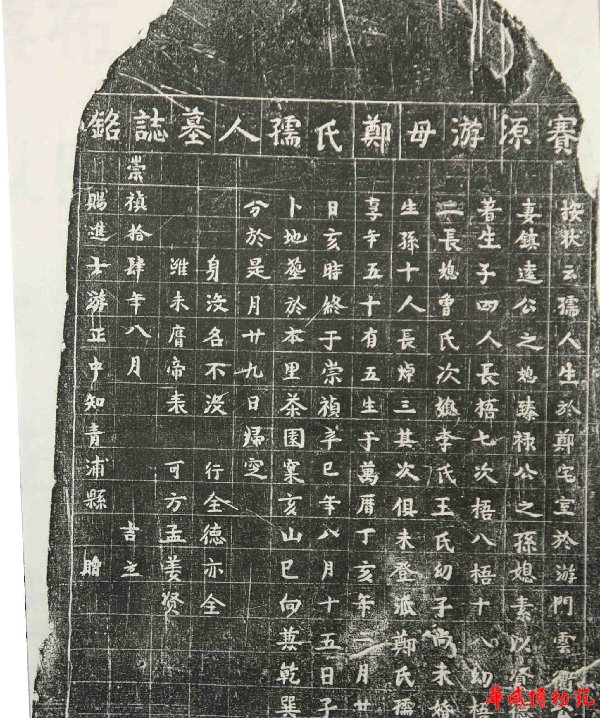 賽源游母鄭氏孺人墓誌銘
按狀云孺人生於鄭宅室於游門雲衢
妻鎮遠公之媳臻祿公之孫媳素以
著生子四人長梧七次梧八梧十八幼梧
二長媳曾氏次媳李氏王氏幼子尚未
生孫十人長焯三其次俱未登派鄭氏孺
享年五十有五生于萬曆丁亥年二月廿
日亥時終于崇禎辛巳年八月十五日子
卜地塋於本里茶園窠亥山巳向兼乾巽
分於是月廿九日歸窆
身沒名不沒 行全德亦全
雖未膺帝表 可方孟姜賢
崇禎拾肆年八月 吉立
賜進士游正中知青浦縣